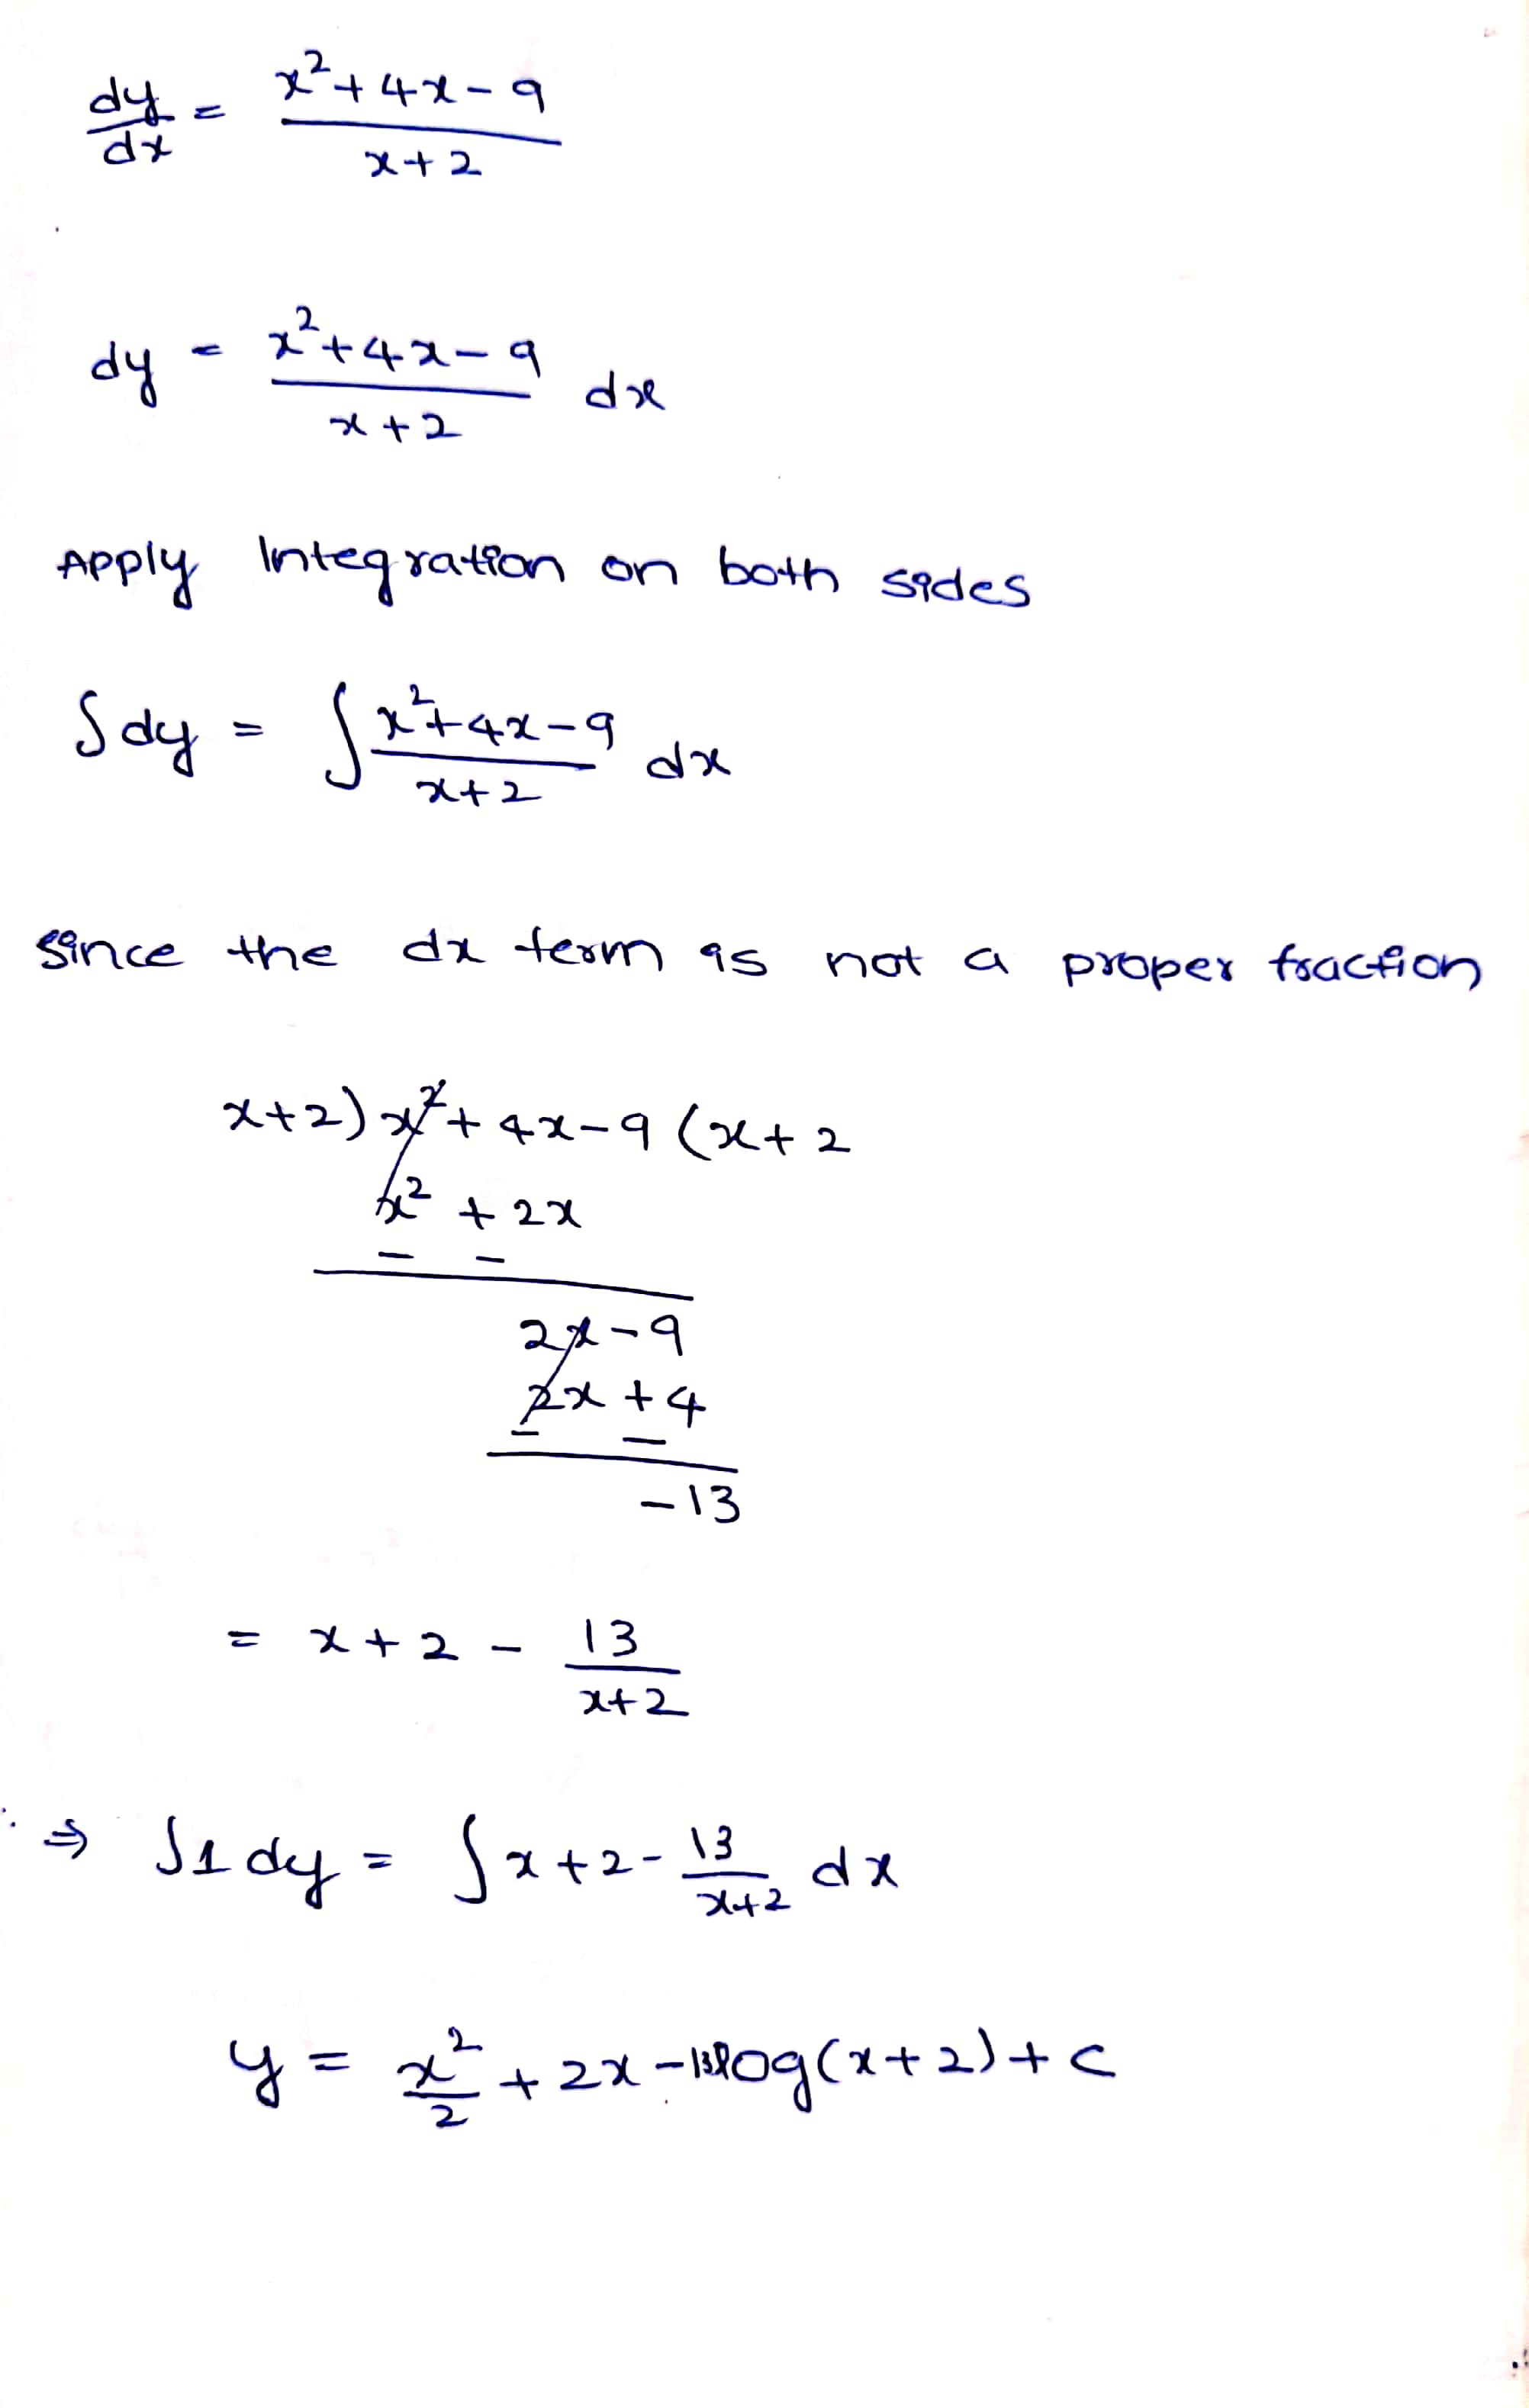 dy/dx = (x² + 4x - 9)/(x + 2)
dy = (x² + 4x - 9)/(x + 2) dx
Apply Integration on both sides
∫dy = ∫ (x² + 4x - 9)/(x + 2) dx
since the dx term is not a proper fraction
x+2) x² + 4x - 9 (x + 2
x² + 2x
- -
2x - 9
2x + 4
- -
-13
= x + 2 - 13/(x+2)
⇒ ∫1 dy = ∫ x + 2 - 13/(x+2) dx
y = x²/2 + 2x - 13log(x+2) + c